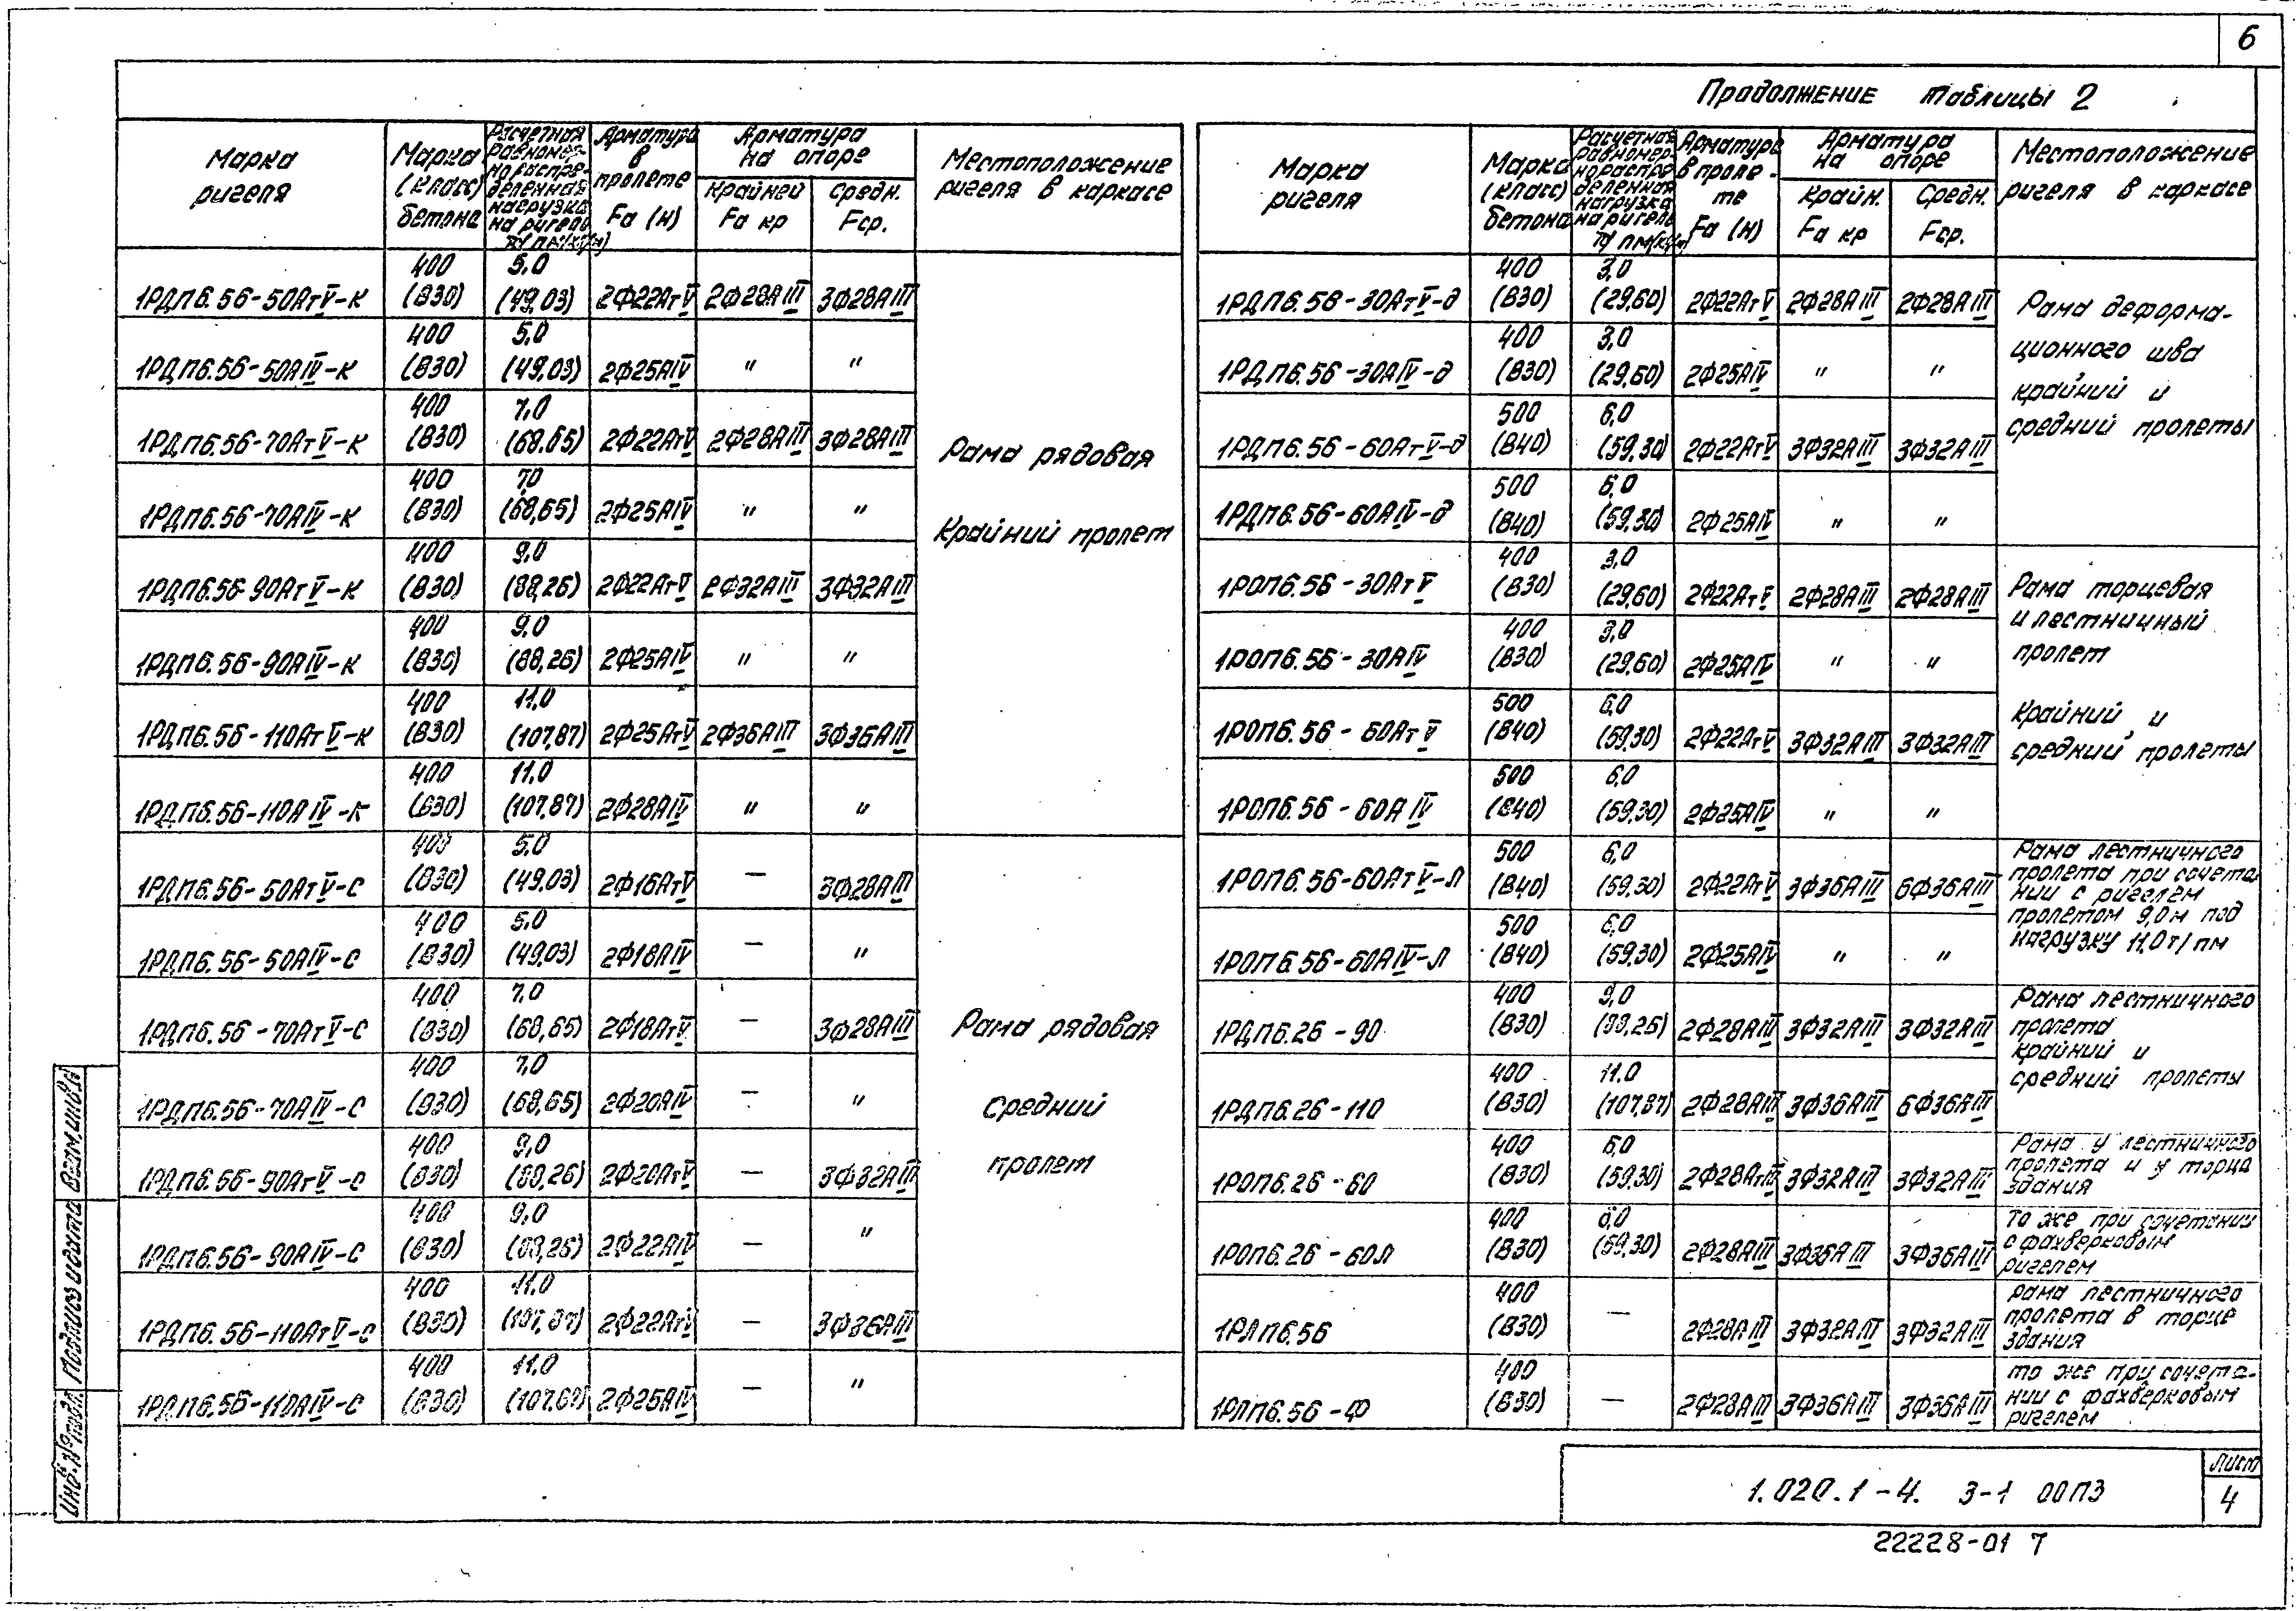 6
Продолжение таблицы 2
Марка ригеля
Марка (класс) бетона
Расчетная равномерно распределенная нагрузка на ригель т/пм (кН/м)
Арматура в пролете Fа (н)
Арматура на опоре
Крайней Fа кр
Средн. Fср.
Местоположение ригеля в каркасе
1РДП6.56-50АтV-К 400 (В30) 5,0 (49,03) 2Ф22АтV 2Ф28АIII 3Ф28АIII
1РДП6.56-50АIV-К 400 (В30) 5,0 (49,03) 2Ф25АIV " "
1РДП6.56-70АтV-К 400 (В30) 7,0 (68,65) 2Ф22АтV 2Ф28АIII 3Ф28АIII
1РДП6.56-70АIV-К 400 (В30) 7,0 (68,65) 2Ф25АIV " "
1РДП6.56-90АтV-К 400 (В30) 9,0 (88,26) 2Ф22АтV 2Ф32АIII 3Ф32АIII
1РДП6.56-90АIV-К 400 (В30) 9,0 (88,26) 2Ф25АIV " "
1РДП6.56-110АтV-К 400 (В30) 11,0 (107,87) 2Ф25АтV 2Ф36АIII 3Ф36АIII
1РДП6.56-110АIV-К 400 (В30) 11,0 (107,87) 2Ф28АIV " "
Рама рядовая
Крайний пролет
1РДП6.56-50АтV-С 400 (В30) 5,0 (49,03) 2Ф16АтV — 3Ф28АIII
1РДП6.56-50АIV-С 400 (В30) 5,0 (49,03) 2Ф18АIV — "
1РДП6.56-70АтV-С 400 (В30) 7,0 (68,65) 2Ф18АтV — 3Ф28АIII
1РДП6.56-70АIV-С 400 (В30) 7,0 (68,65) 2Ф20АIV — "
1РДП6.56-90АтV-С 400 (В30) 9,0 (88,26) 2Ф20АтV — 3Ф32АIII
1РДП6.56-90АIV-С 400 (В30) 9,0 (88,26) 2Ф22АIV — "
1РДП6.56-110АтV-С 400 (В30) 11,0 (107,87) 2Ф22АтV — 3Ф36АIII
1РДП6.56-110АIV-С 400 (В30) 11,0 (107,87) 2Ф25АIV — "
Рама рядовая
средний
пролет
Марка ригеля
Марка (класс) бетона
Расчетная равномерно распределенная нагрузка на ригель т/пм (кН/м)
Арматура в пролете Fа (н)
Арматура на опоре
Крайн. Fа кр
Средн. Fср.
Местоположение ригеля в каркасе
1РДП6.56-30АтV-д 400 (В30) 3,0 (29,60) 2Ф22АтV 2Ф28АIII 2Ф28АIII
1РДП6.56-30АIV-д 400 (В30) 3,0 (29,60) 2Ф25АIV " "
1РДП6.56-60АтV-д 500 (В40) 6,0 (59,30) 2Ф22АтV 3Ф32АIII 3Ф32АIII
1РДП6.56-60АIV-д 500 (В40) 6,0 (59,30) 2Ф25АIV " "
Рама деформа-
ционного шва
крайний и
средний пролеты
1РОП6.56-30АтV 400 (В30) 3,0 (29,60) 2Ф22АтV 2Ф28АIII 2Ф28АIII
1РОП6.56-30АIV 400 (В30) 3,0 (29,60) 2Ф25АIV " "
1РОП6.56-60АтV 500 (В40) 6,0 (59,30) 2Ф22АтV 3Ф32АIII 3Ф32АIII
1РОП6.56-60АIV 500 (В40) 6,0 (59,30) 2Ф25АIV " "
Рама торцевая
и лестничный
пролет
Крайний и
средний пролеты
1РОП6.56-60АтV-Л 500 (В40) 6,0 (59,30) 2Ф22АтV 3Ф36АIII 6Ф36АIII
1РОП6.56-60АIV-Л 500 (В40) 6,0 (59,30) 2Ф25АIV " "
Рама лестничного
пролета при сочета
нии с ригелем
пролетом 9,0м под
нагрузку 11,0т/пм
1РДП6.26-90 400 (В30) 9,0 (88,26) 2Ф28АIII 3Ф32АIII 3Ф32АIII
1РДП6.26-110 400 (В30) 11,0 (107,87) 2Ф28АIII 3Ф36АIII 6Ф36АIII
Рама лестничного
пролета
крайний и
средний пролеты
1РОП6.26-60 400 (В30) 6,0 (59,30) 3Ф32АIII 3Ф32АIII
Рама у лестничного
пролета и у торца
здания
1РОП6.26-60Л 400 (В30) 6,0 (59,30) 2Ф28АIII 3Ф36АIII 3Ф36АIII
То же при сочетании
с фахверковым
ригелем
1РЛП6.56 400 (В30) — 2Ф28АIII 3Ф32АIII 3Ф32АIII
рама лестничного
пролета в торце
здания
1РЛП6.56-Ф 400 (В30) — 2Ф28АIII 3Ф36АIII 3Ф36АIII
то же при сочета-
нии с фахверковым
ригелем
Инв.№подл. Подпись и дата Взам.инв.№
1.020.1-4. 3-1 00ПЗ
Лист
4
22228-01 7